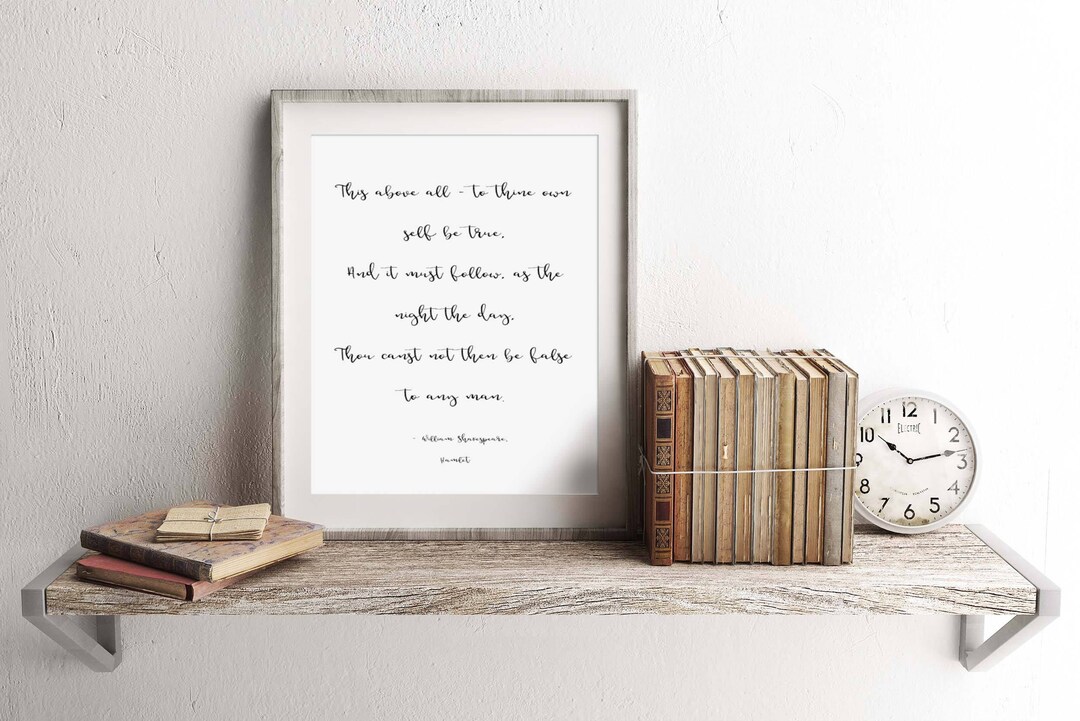 This above all - to thine own
self be true,
And it must follow, as the
night the day,
Thou canst not then be false
to any man.
- William Shakespeare,
Hamlet
12
11
10
9
8
7
6
5
4
3
2
1
ELECTRIC